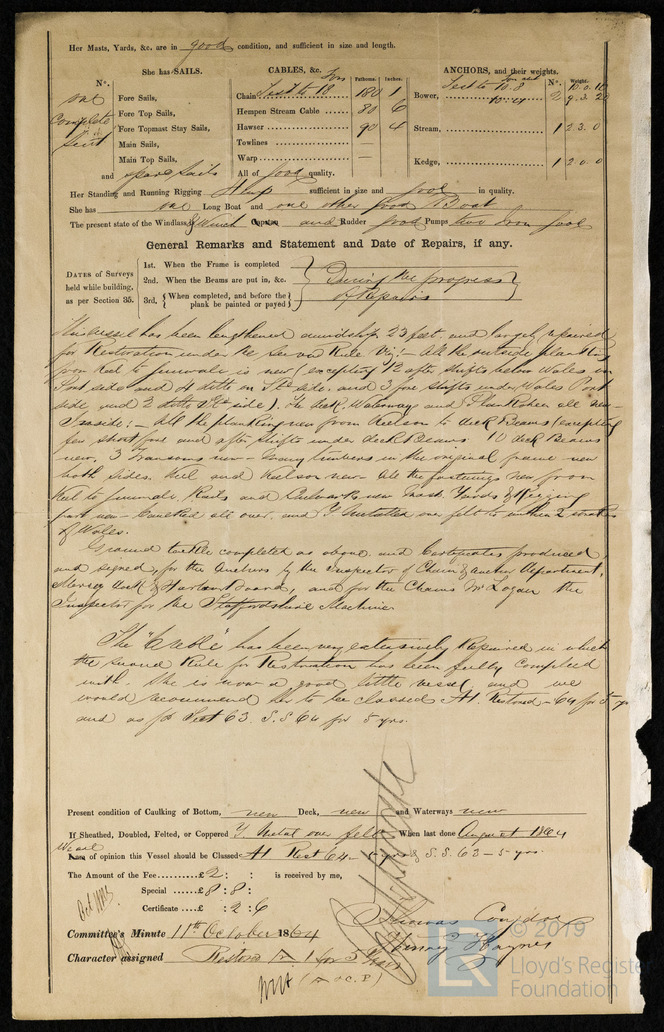 Her Masts, Yards, &c. are in good condition, and sufficient in size and length.
She has SAILS.
CABLES, &c.
Fathoms.
Inches.
ANCHORS, and their weights.
N°.
Weight.
N°.
one
Complete
Sent
and spare sails
Fore Sails,
Fore Top Sails,
Fore Topmast Stay Sails,
Main Sails,
Main Top Sails,
Chain Test to 18 Tons 180 1
Hempen Stream Cable 80 6
Hawser 90 4
Towlines
Warp
All of good quality.
Bower, Test to 10.8 2
Stream, 1 2 3 0
Kedge, 1 2 0 0
Her Standing and Running Rigging Hemp sufficient in size and good in quality.
She has one Long Boat and one other good Boat
The present state of the Windlass & Winch Capstan and Rudder good Pumps two Iron good
General Remarks and Statement and Date of Repairs, if any.
DATES of Surveys held while building, as per Section 35.
1st. When the Frame is completed
2nd. When the Beams are put in, &c.
3rd. { When completed, and before the plank be painted or payed }
During the progress
of Repairs
This vessel has been lengthened amidships 23 feet and largely repaired
for Restoration under the Second Rule Viz:- All the outside planking
from keel to gunwale is new (excepting 12 after shifts below Wales in
Port side and 4 ditto in St'd side. and 3 fore shifts under Wales Port
side, and 2 ditto St'd side). The deck, Waterways and Plansheer all new -
Inside:- All the planking new from Keelson to deck Beams (excepting
few short fore and after shifts under deck Beams 10 deck Beams
new, 3 Transoms new - many timbers in the original frame new
both sides. Keel and Keelson new. All the fastenings new from
Keel to gunwale. Rails and Bulwarks new Mast Yards & Rigging
part new - Caulked all over, and Y Metalled over felt to within 2 strakes
of Wales.
Ground tackle completed as above and Certificates produced,
and signed, for the Anchors by the Inspector of Chain & anchor Department,
Mersey Dock & Harbour Board, and for the Chains Mr Logan the
Inspector for the Staffordshire Machine
The "Areble" has been very extensively Repaired in which
the second Rule for Restoration has been fully complied
with. She is now a good little vessel and we
would recommend her to be classed A1. Restored - 64 for 5 yrs
and as for Sect 63. S.S 64 for 5 yrs.
Present condition of Caulking of Bottom, new Deck, new and Waterways new
If Sheathed, Doubled, Felted, or Coppered Y. Metal over felt When last done August 1864
We are of opinion this Vessel should be Classed A1 Rest 64 - 5 yrs & S.S 63 - 5 yrs.
The Amount of the Fee £2 : : is received by me,
Special £8 : 8 :
Certificate £ : 2 : 6
Committee's Minute 11th October 1864
Character assigned Restored A 1 for 5 Years
Thomas Congdon
Henry Haynes
© 2019
LR
Lloyd's Register
Foundation